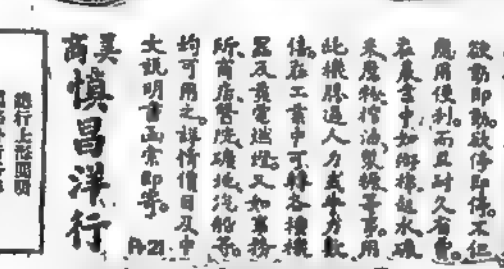 欲動即動。欲停即停。不但
應用便利。而且耐久省費。
表農舍中如樹棉起水磯
米磨粉榨油製線等事。用
此機勝過人力或牛力數
倍。在工業中可轉各種機
器及發電燃燈。又如事務
所商店醫院礦地汽船等。
均可用之。詳情價目及中
文說明書函索即寄。
Ph21
美商
慎昌洋行
總行上海圓明